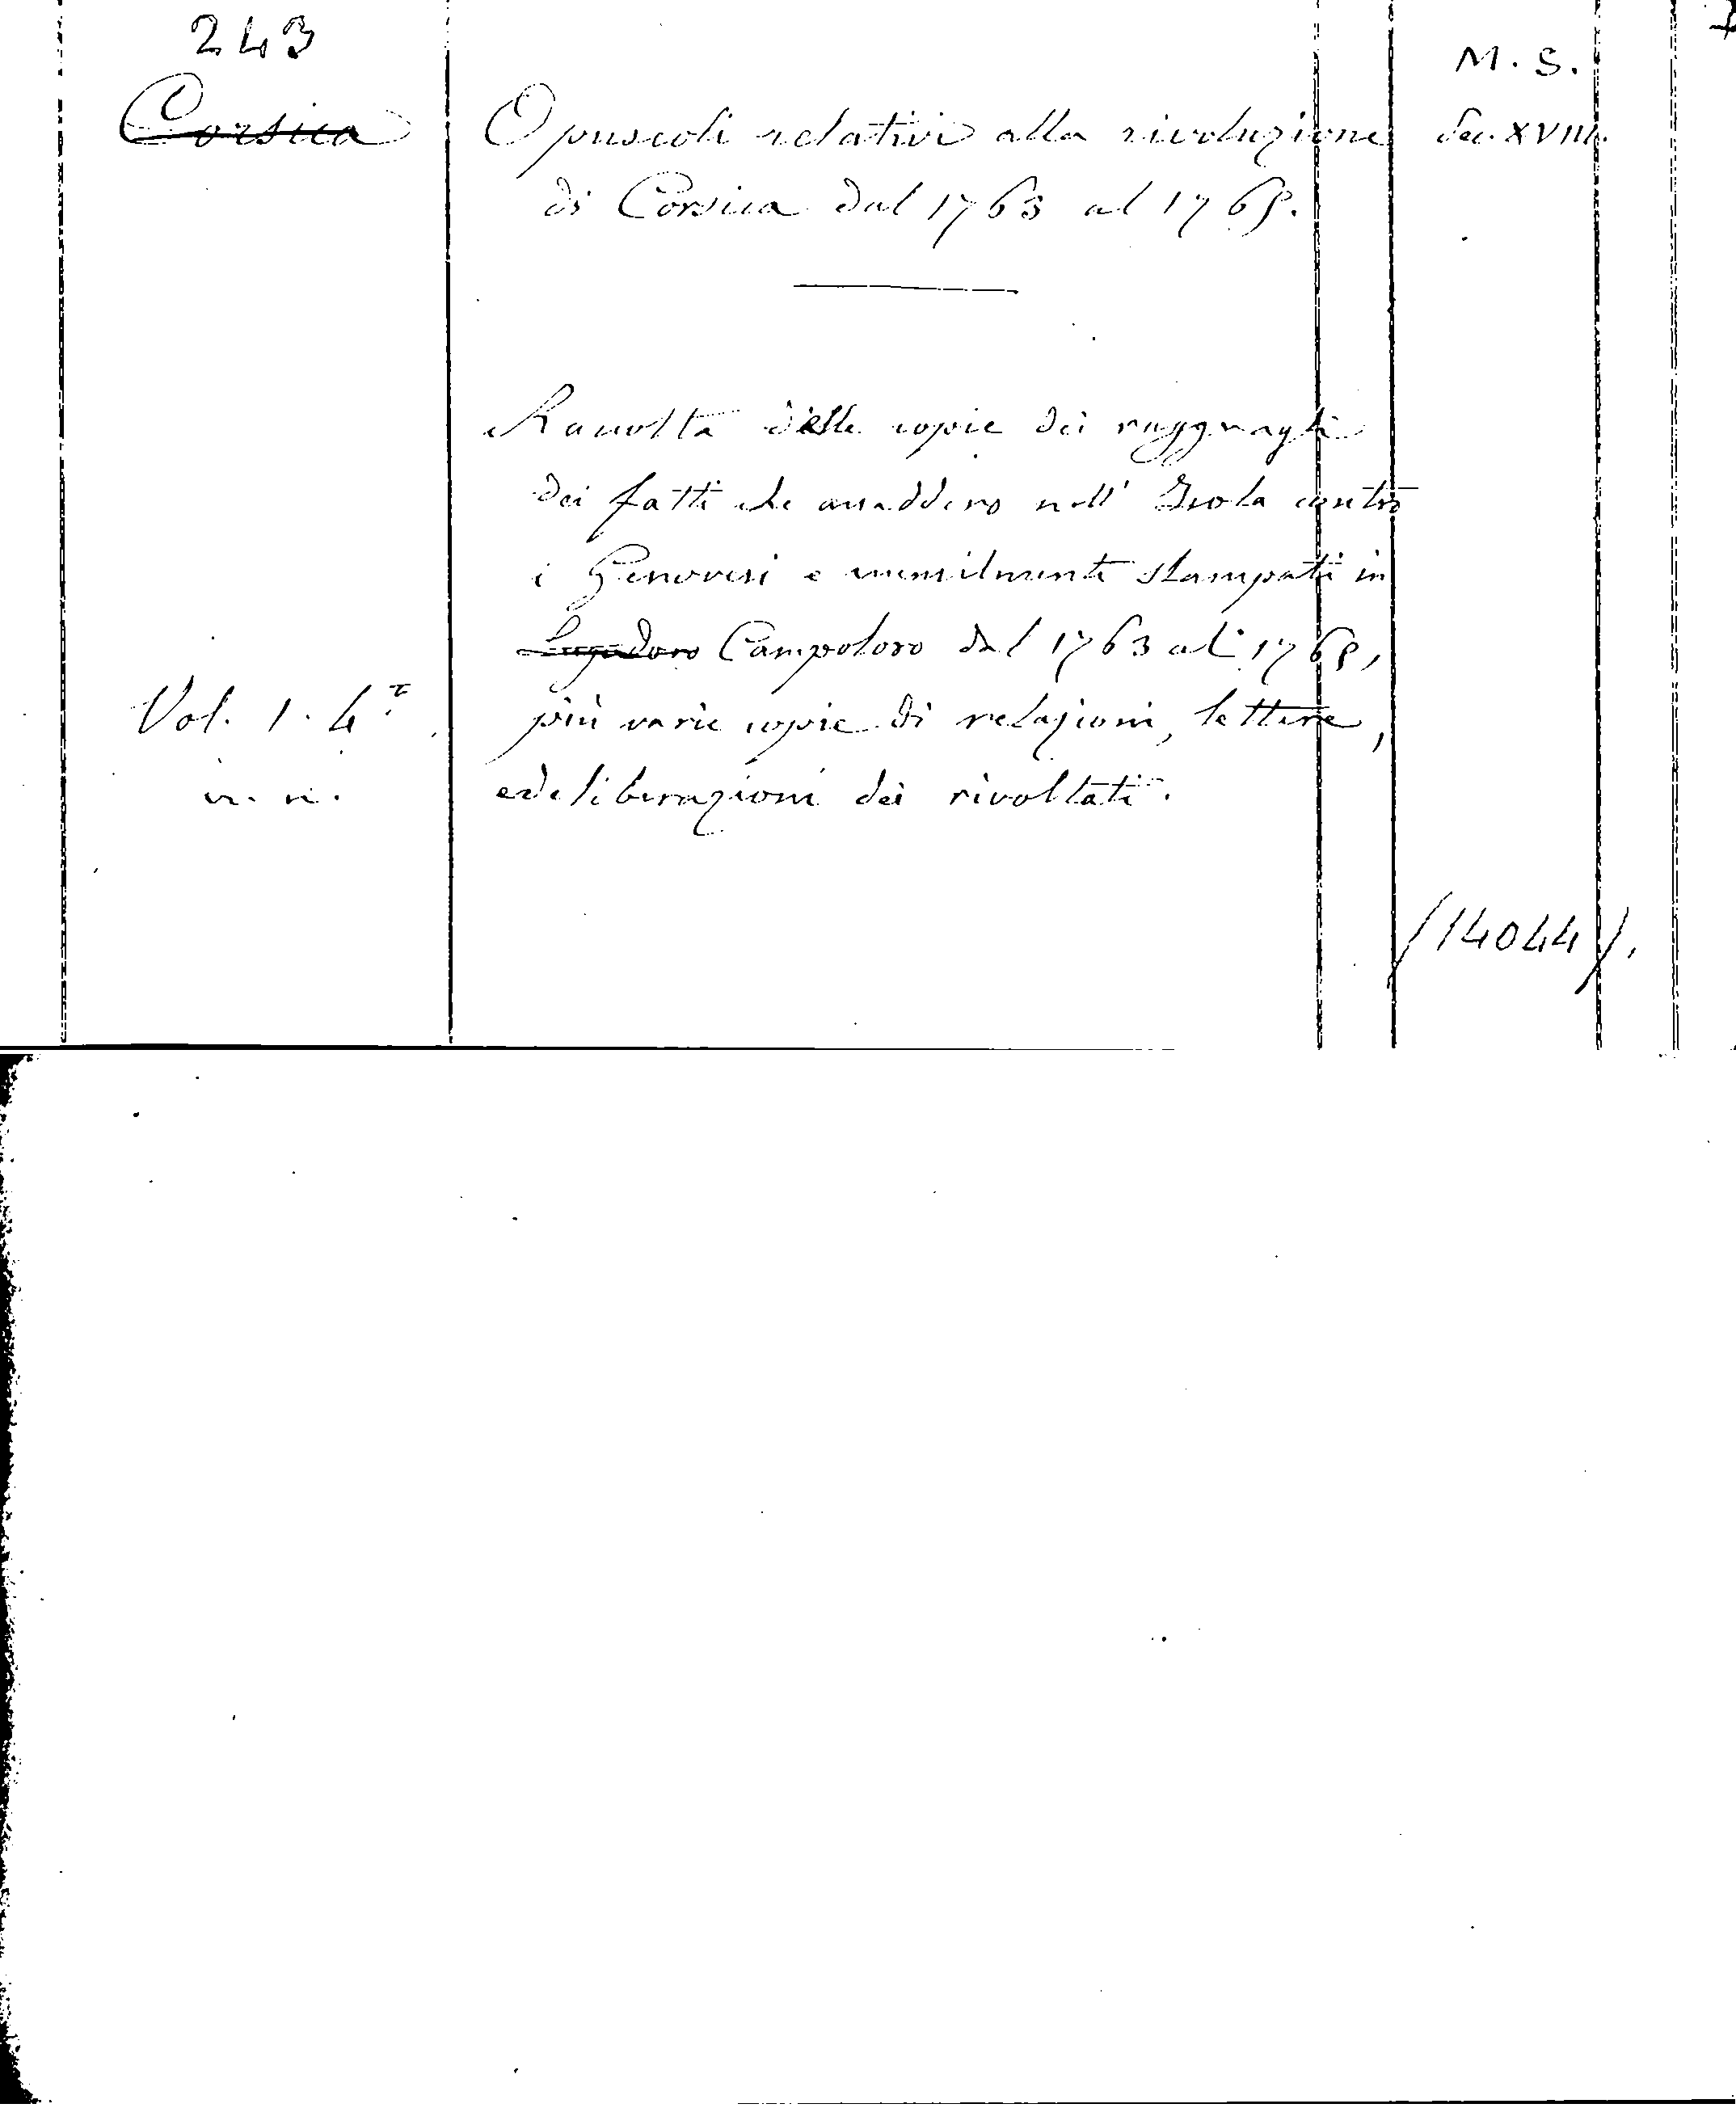 243
M. S.
Corsica
Opuscoli relativi alla rivoluzione
Sec. XVIII.
di Corsica dal 1763 al 1768.
Raccolta delle copie dei ragguagli
dei fatti che accaddero nell' Isola contro
i Genovesi e mensilmente stampati in
Campoloro dal 1763 al 1768,
Vol. 1. 4°
più varie copie di relazioni, lettere,
n. n.
e deliberazioni dei rivoltati.
(14044).